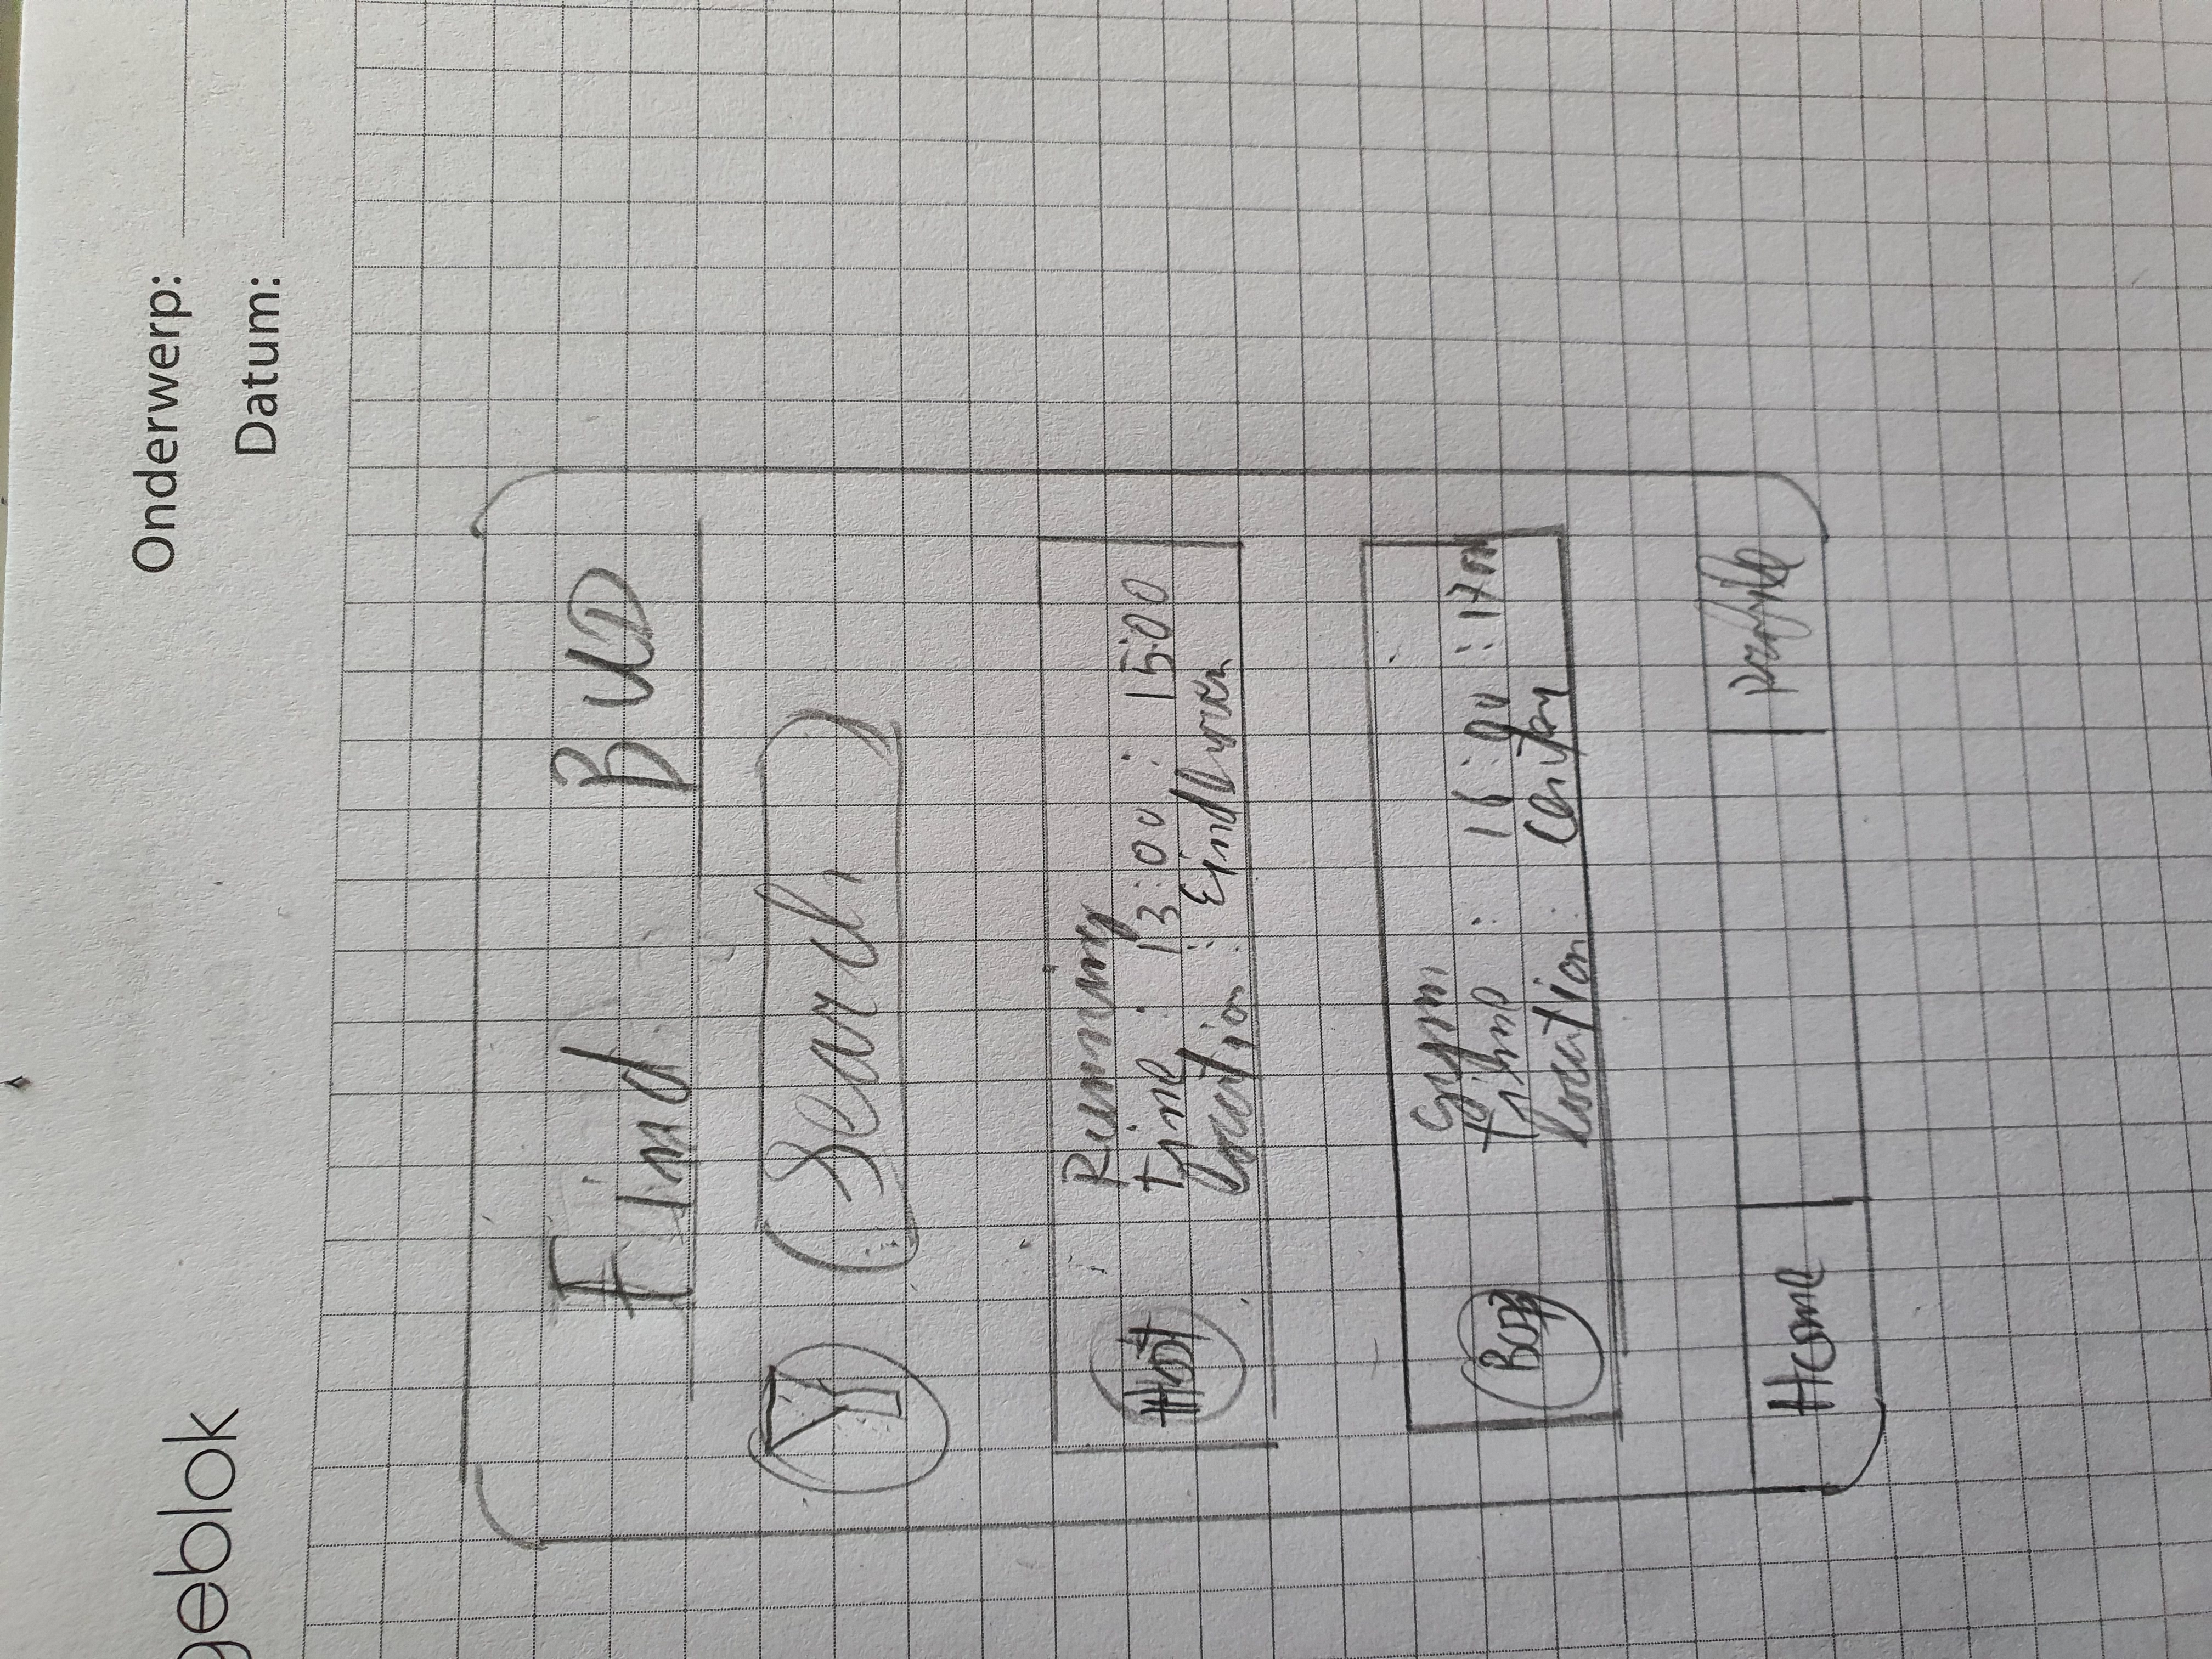 geblok
Onderwerp:
Datum:
Find BUD
Search
Host
Running
time : 13:00 : 15:00
location : Eindhoven
Gym
time : 16:00 : 1700
location :
Home
Profile